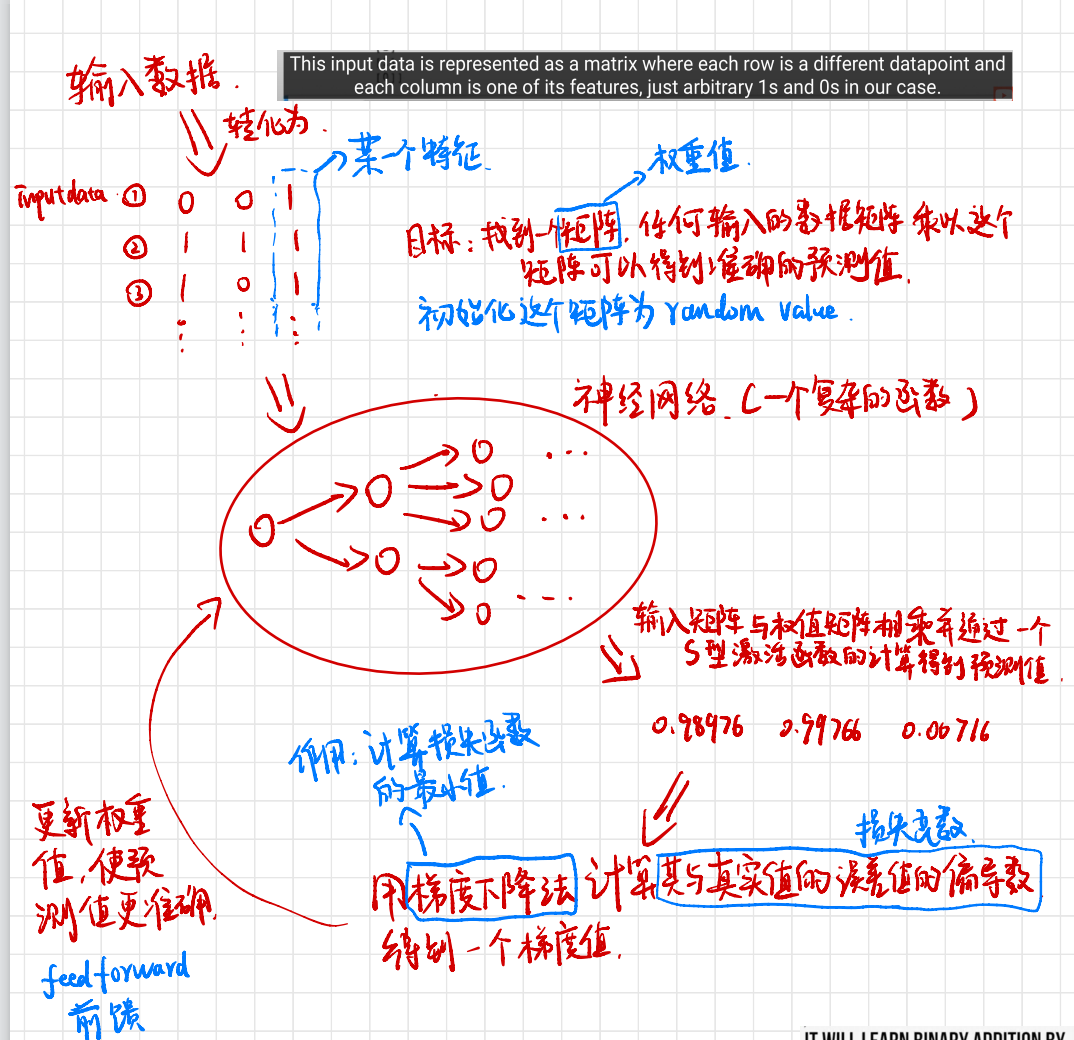 输入数据.
This input data is represented as a matrix where each row is a different datapoint and
each column is one of its features, just arbitrary 1s and 0s in our case.
转化为.
某一个特征.
权重值.
inputdata ① 0 0 1
② 1 1 1
③ 1 0 1
目标: 找到一个矩阵, 任何输入的数据矩阵乘以这个
矩阵可以得到准确的预测值.
初始化这个矩阵为 random value.
神经网络. (一个复杂的函数)
输入矩阵与权值矩阵相乘并通过一个
S型激活函数的计算得到预测值.
0.98976 0.99766 0.00716
作用: 计算损失函数
的最小值.
更新权重
值, 使预
测值更准确.
feedforward
前馈
损失函数.
用梯度下降法 计算其与真实值的误差值的偏导数
得到一个梯度值.
IT WILL LEARN BINARY ADDITION BY